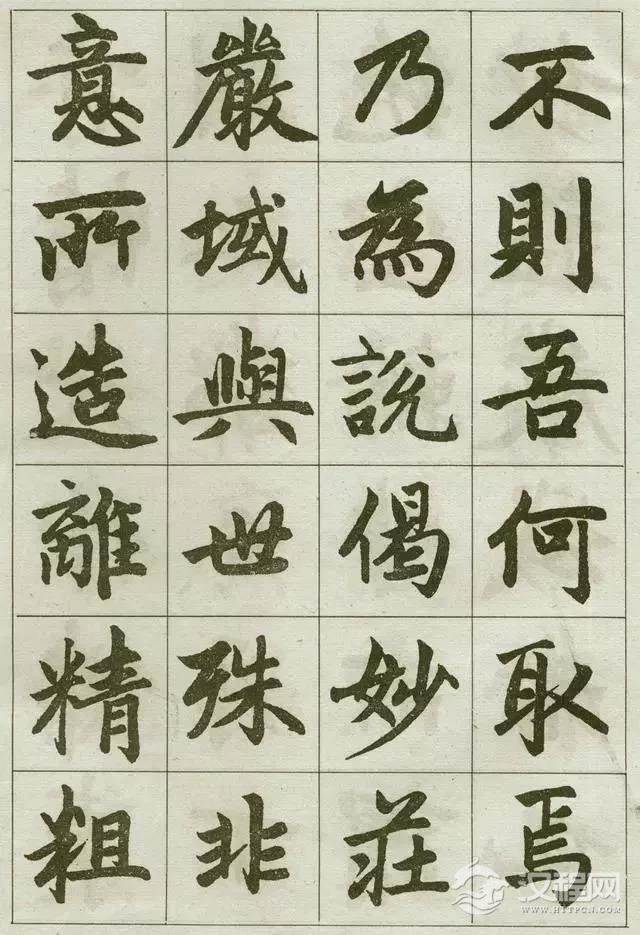 不則吾何取焉
乃為說偈妙莊
嚴域與世殊非
意所造離精粗
汉程网
WWW.HTTPCN.COM